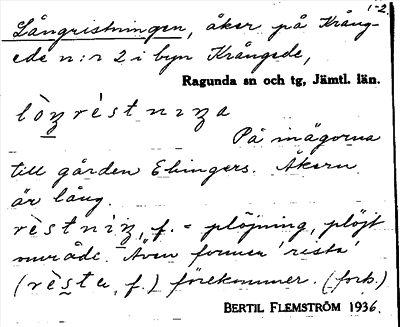 1-2.
Långristningen, åker på Krång-
ede n:r 2 i byn Krångede,
Ragunda sn och tg, Jämtl. län.
På inägorna
till gården Elingers. Åkern
är lång.
f. = plöjning, plöjt
område. Även formen 'rista'
f.) förekommer. (forts.)
BERTIL FLEMSTRÖM 1936.